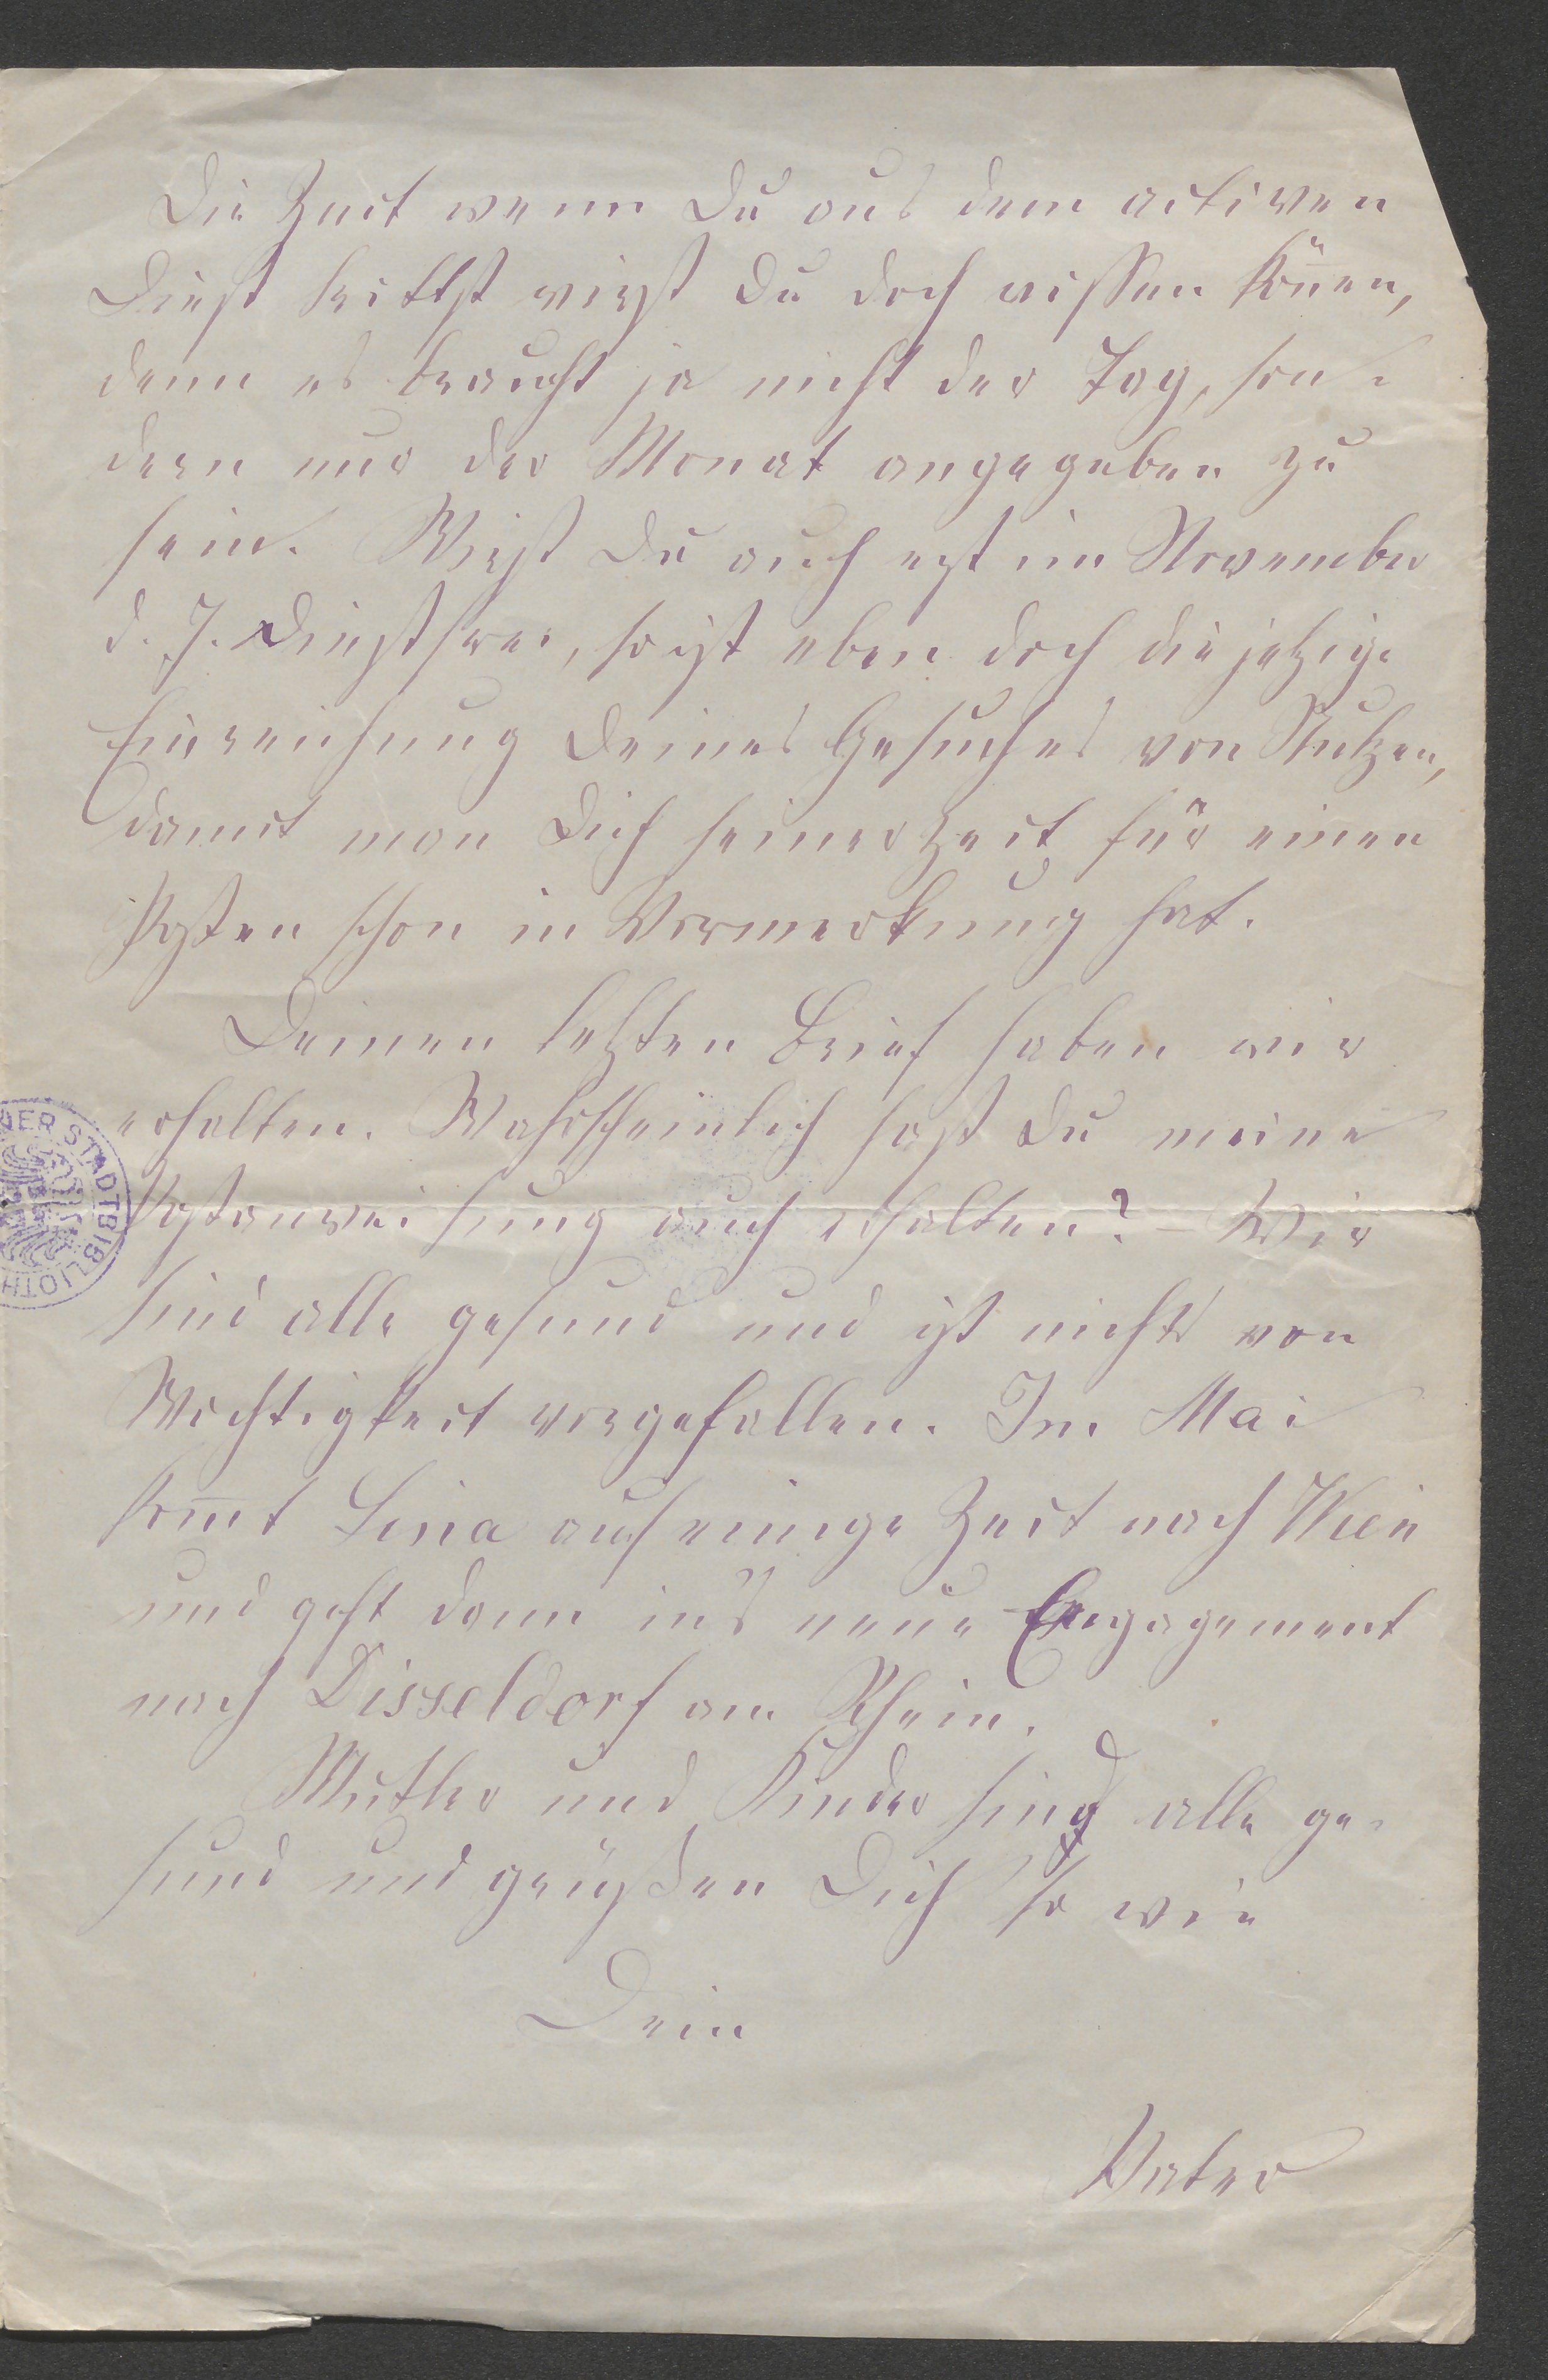 Die Zeit wenn Du aus dem activen
Dienst trittst wirst Du doch wissen köñen,
denn es braucht ja nicht der Tag, son-
dern nur der Monat angegeben zu
sein. Wirst Du auch erst im November
d. J. Dienstfrei, so ist eben doch die jetzige
Einreichung Deines Gesuches von Nutzen,
damit man Dich seinerzeit für einen
Posten schon in Vormerkung hat.
Deinen letzten Brief haben wir
erhalten. Wahrscheinlich hast Du meine
Postanweisung auch erhalten? – Wir
sind alle gesund und ist nichts von
Wichtigkeit vorgefallen. Im Mai
kom̄t Lina auf einige Zeit nach Wien
und geht dann in's neue Engagement
nach Disseldorf am Rhein.
Mutter und Kinder sind alle ge-
sund und grüßen Dich so wie
Dein
Vater
DER STADTBIBLIOTH